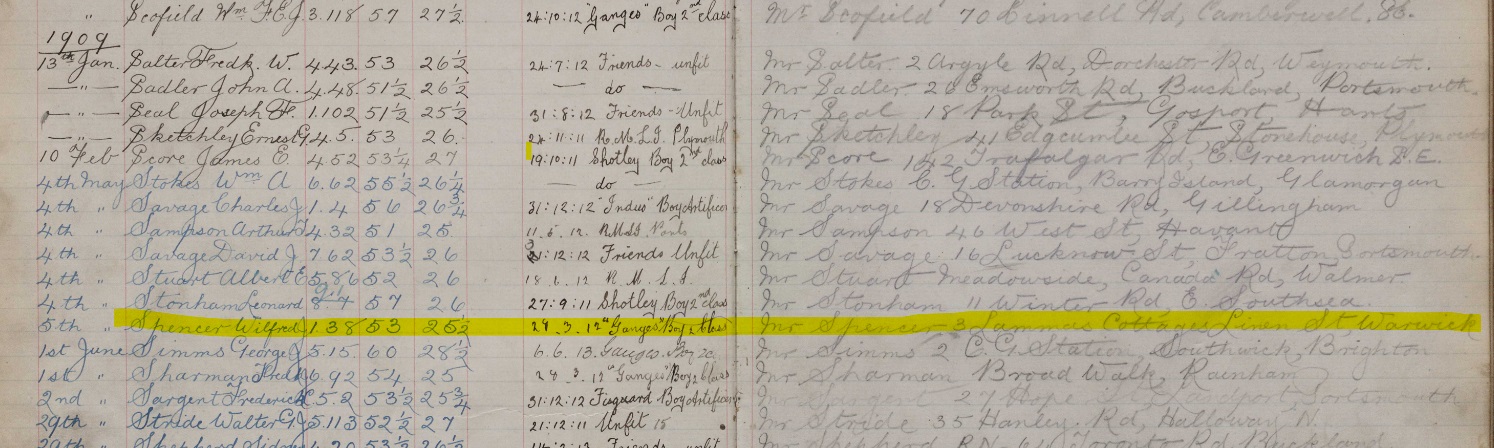 " Scofield Wm F.E.J. 3.118 57 27½ 24:10:12 "Ganges" Boy 2nd class Mr Scofield 70 Linnell Rd, Camberwell. S.E.
1909
13th Jan. Salter Fredk. W. 4.43. 53 26½ 24:7:12 Friends - unfit Mr Salter. 2 Argyle Rd, Dorchester Rd, Weymouth.
—"— Sadler John A. 4.48. 51½ 26½ — do — Mr Sadler. 20 Emsworth Rd, Buckland, Portsmouth.
—"— Seal Joseph F. 1.102 51½ 25½ 31:8:12 Friends - Unfit Mr Seal 18 Park St, Gosport, Hants
—"— Sketchley Ernest G. 4.5. 53 26. 24:11:11 R.M.L.I. Plymouth Mr Sketchley 41 Edgcumbe St, Stonehouse, Plymouth
10 Feb Score James E. 4.52 53¼ 27 19:10:11 Shotley Boy 2nd class Mr Score 142 Trafalgar Rd, E. Greenwich S.E.
4th May Stokes Wm A 6.62 55½ 26¼ — do — Mr Stokes C.G Station, Barry Island, Glamorgan
4th " Savage Charles J 1.4 56 26¾ 31:12:12 "Indus" Boy Artificer Mr Savage 18 Devonshire Rd, Gillingham
4th " Sampson Arthur 4.32 51 25 11.6.12. Mr Sampson 46 West St, Havant
4th " Savage David J. 7.62 53½ 26 :12:12 Friends Unfit Mr Savage 16 Lucknow St, Fratton Portsmouth.
4th " Stuart Albert E 52 26 18.6.12 R.M.L.I. Mr Stuart Meadowside, Canada Rd, Walmer
4th " Stonham Leonard 57 26 27:9:11 Shotley Boy 2nd class Mr Stonham 11 Winter Rd, E. Southsea.
5th " Spencer Wilfred 1.38 53 25½ 29.3.12 "Ganges" Boy 2 Class Mr Spencer 3 Lammas Cottages Linen St Warwick
1st June Simms George J 5.15. 60 28½ 6.6.13. Ganges. Boy 2c. Mr Simms 2 C.G Station, Southwick, Brighton
1st " Sharman Fredk 6.92 54 25 28.3.12 "Ganges" Boy 2 Class Mr Sharman Broad Walk, Rainham
2nd " Sargent Frederick 5.2 53½ 25¾ 31:12:12 Fisguard Boy Artificer Mr Sargent 27 Portsmouth
29th " Stride Walter G J 5.113 52½ 27 21:12:11 Unfit 15 Mr Stride 35 Hanley. Rd, Holloway N.
29th " Shepherd Sidney 4.20 53½ 26½ Friends unfit Mr Shepherd R.N. Toronto Rd, Buckland